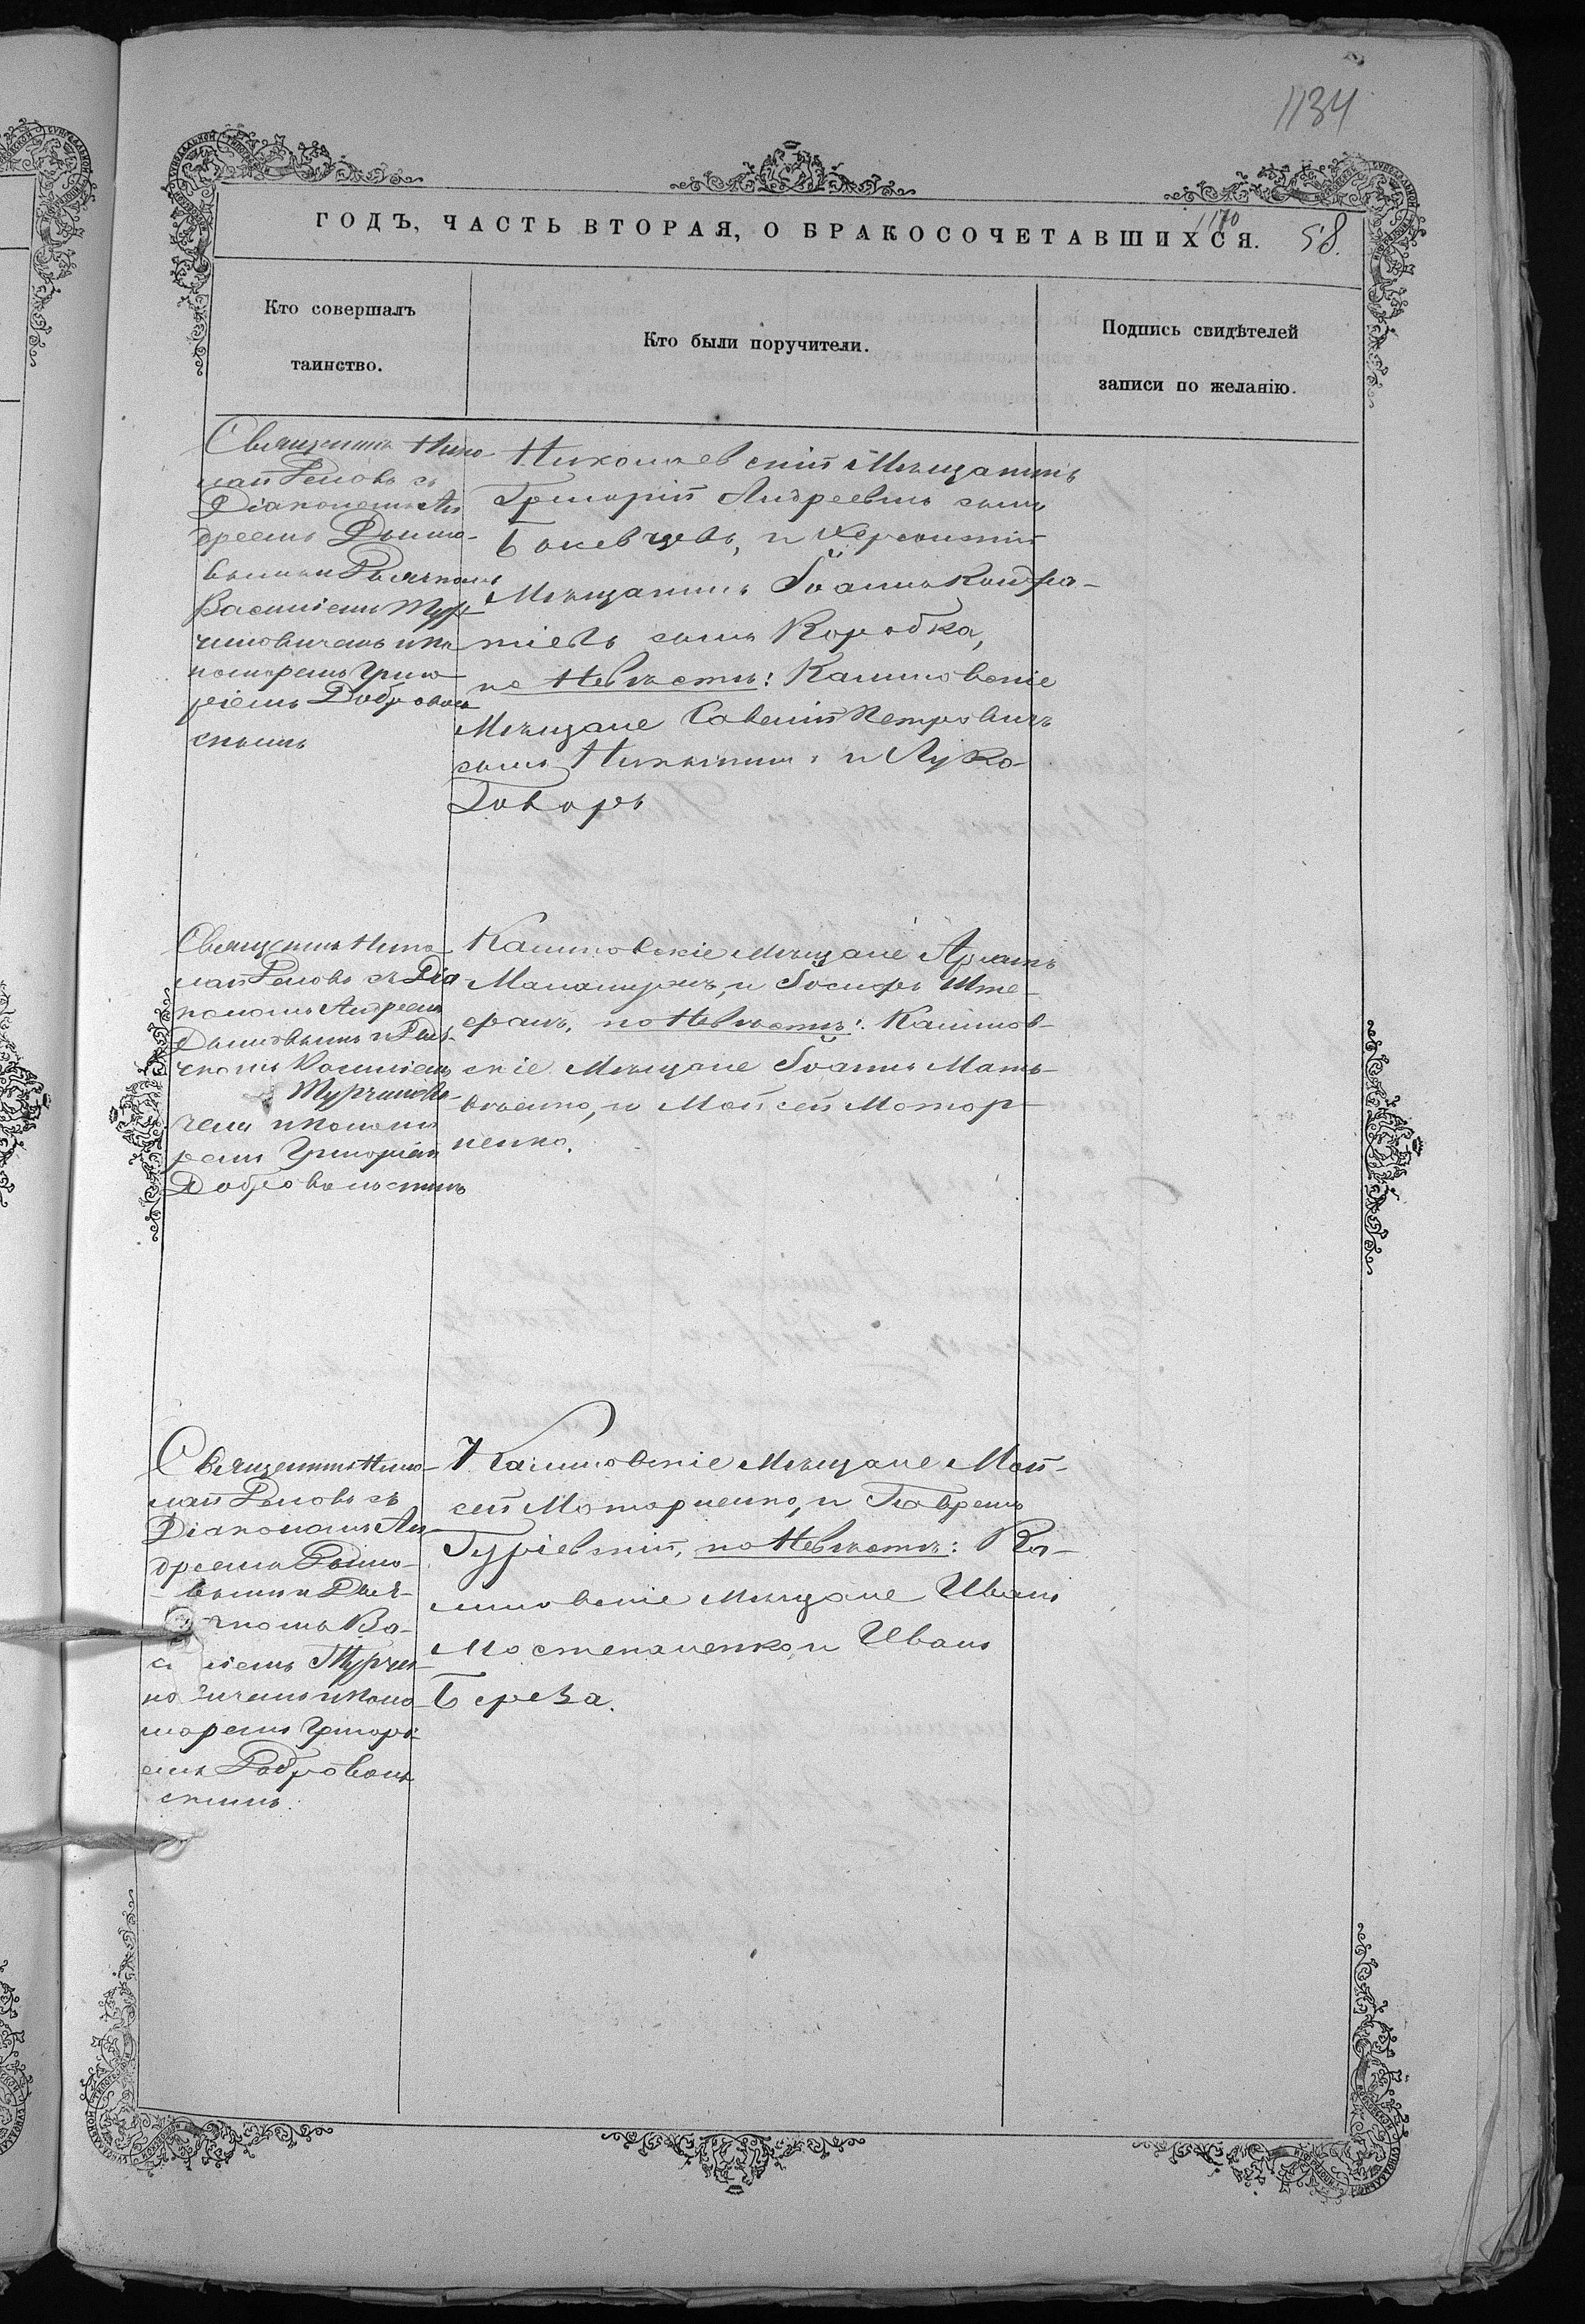 1134
ГОДЪ, ЧАСТЬ ВТОРАЯ, О БРАКОСОЧЕТАВШИХСЯ.
1170
58.
Кто совершалъ
таинство.
Кто были поручители.
Подпись свидѣтелей
записи по желанію.
Священникъ Нико-
лай съ
Діакономъ Ан
дреемъ
Василіемъ Тур
чиновичемъ и по
номаремъ Григо
ріемъ Добровол
скимъ
Николаевскій Мѣщанинъ
Григорій Андреевъ сынъ
и Херсонскій
Мѣщанинъ Іоаннъ Кондра-
тіевъ сынъ Коробка,
по Невѣстѣ: Калиновскіе
Мѣщане Савелій Петровичъ
сынъ и Лука
Говоръ
Священникъ Нико-
лай съ Діа
кономъ Андреемъ
Василіемъ
Турчинови-
чемъ и понома
ремъ Григоріемъ
Добровольскимъ
Калиновскіе Мѣщане
и Іосифъ
по Невѣстѣ: Калинов-
скіе Мѣщане Іоаннъ Мат-
вѣенко, и Мойсей Мотор-
ненко.
Священникъ Нико-
лай съ
Діакономъ Ан-
дреемъ
Ва-
Турчи
и поно
маремъ Григорі
емъ Доброволь
скимъ.
Калиновскіе Мѣщане Мой-
сей Моторненко, и
Гуріевскій, по Невѣстѣ: Ка-
линовскіе мѣщане Иванъ
Мостепаненко и Иванъ
Береза.